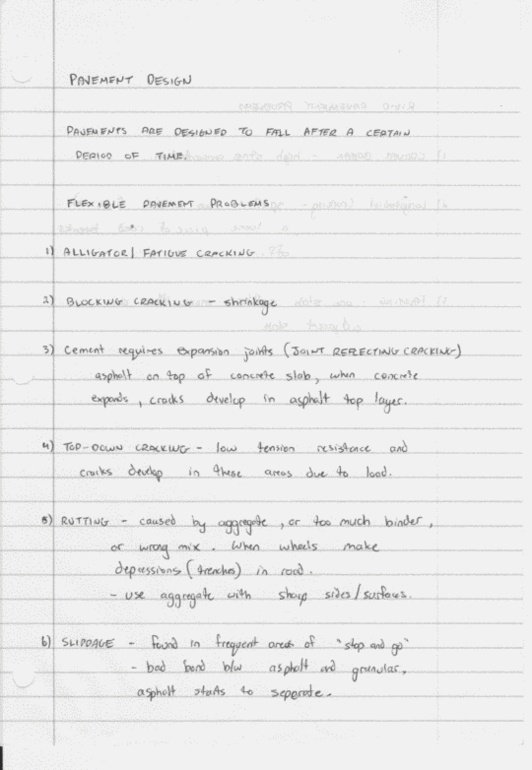 PAVEMENT DESIGN
PAVEMENTS ARE DESIGNED TO FALL AFTER A CERTAIN
PERIOD OF TIME.
FLEXIBLE PAVEMENT PROBLEMS
1) ALLIGATOR / FATIGUE CRACKING
2) BLOCKING CRACKING - shrinkage
3) Cement requires expansion joints (JOINT REFLECTING CRACKING)
asphalt on top of concrete slab, when concrete
expands, cracks develop in asphalt top layer.
4) TOP-DOWN CRACKING - low tension resistance and
cracks develop in these areas due to load.
5) RUTTING - caused by aggregate, or too much binder,
or wrong mix. When wheels make
depressions (trenches) in road.
- use aggregate with sharp sides/surfaces.
6) SLIPPAGE - found in frequent areas of "stop and go"
- bad bond b/w asphalt and granular,
asphalt starts to seperate.